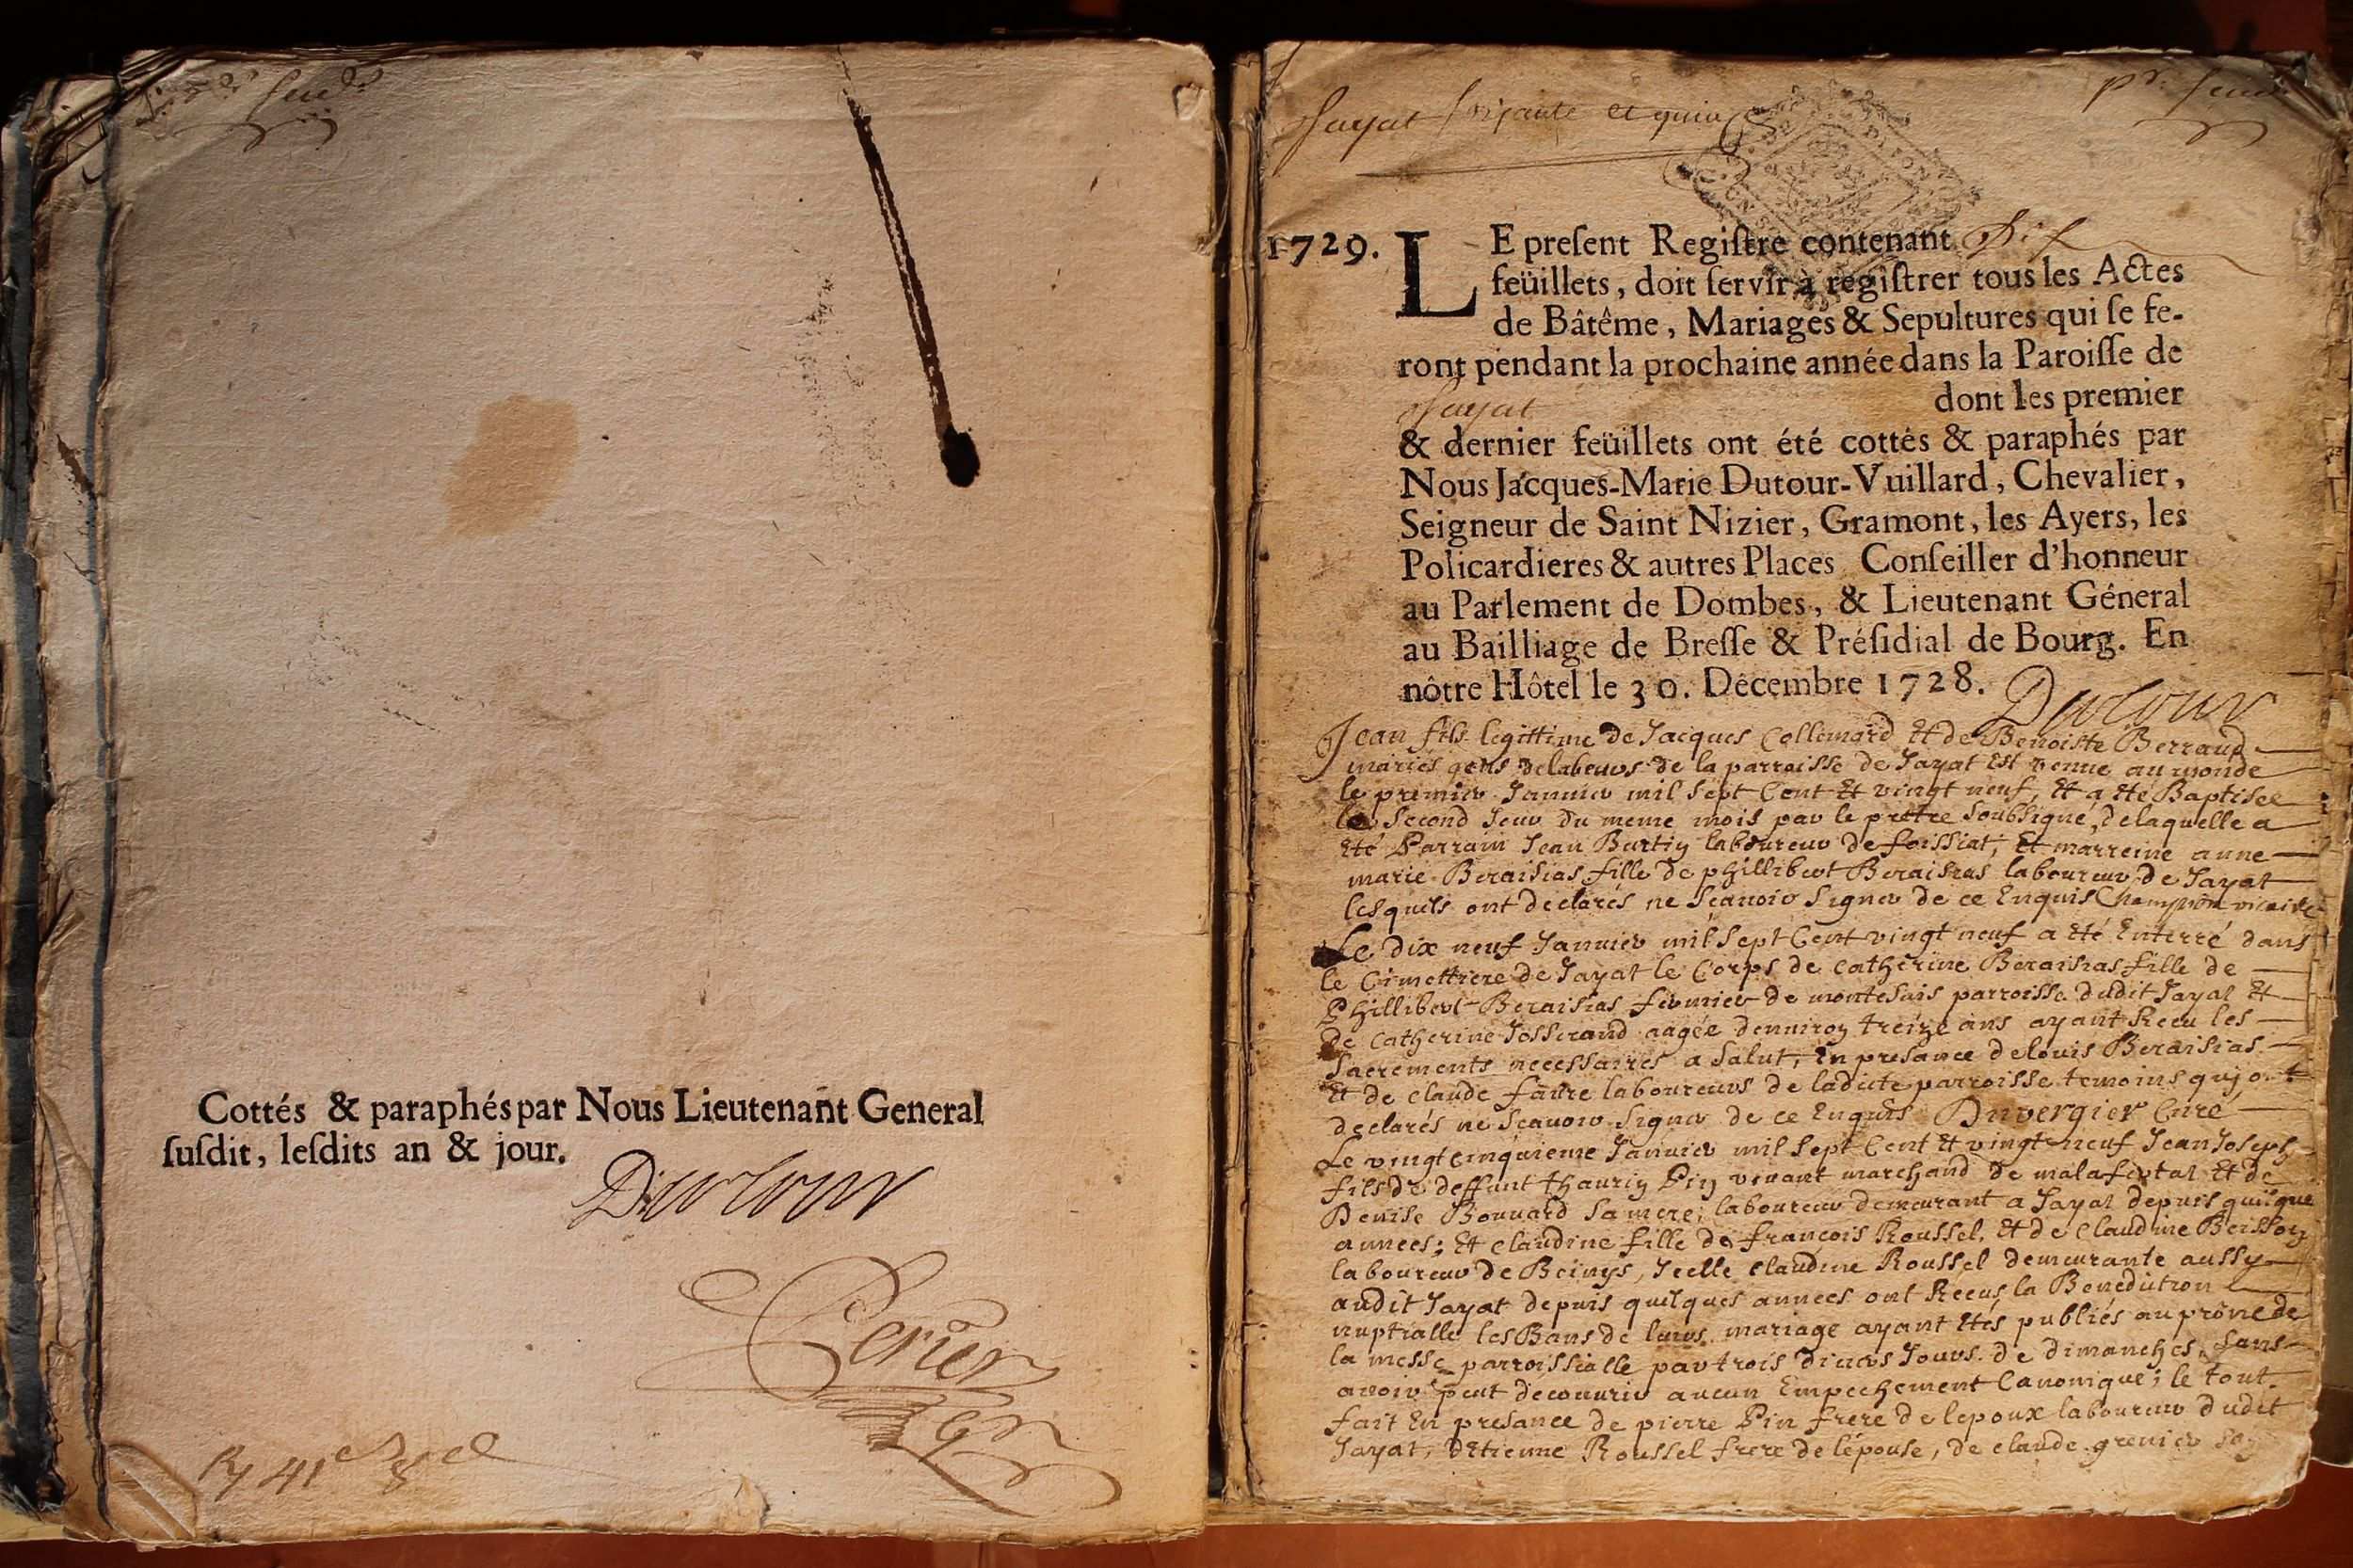 Cottés & paraphés par Nous Lieutenant General
ſuſdit, leſdits an & jour.
Dutour
Perier
Jayat
1729. LE preſent Regiſtre contenant dix
feüillets, doit ſervir a regiſtrer tous les Actes
de Bâtême, Mariages & Sepultures qui ſe fe-
ront pendant la prochaine année dans la Paroiſſe de
Jayat dont les premier
& dernier feüillets ont été cottés & paraphés par
Nous Jacques-Marie Dutour-Vuillard, Chevalier,
Seigneur de Saint Nizier, Gramont, les Ayers, les
Policardieres & autres Places Conſeiller d'honneur
au Parlement de Dombes, & Lieutenant Géneral
au Bailliage de Breſſe & Préſidial de Bourg. En
nôtre Hôtel le 30. Décembre 1728. Dutour
Jean fils legittime de Jacques Collemard Et de Benoiste Berraud
mariés gens delabeurs de la parroisse de Jayat Est venue au monde
le premier Januier mil Sept Cent Et vingt neuf, Et a Eté Baptisée
le Second Jour du meme mois par le pretre Soubsigné, delaquelle a
Eté Parrain Jean Burtin laboureur de foissiat, Et marreine anne
marie Beraisias fille de phillibert Beraisias laboureur de Jayat
lesquels ont declarés ne Sçauoir Signer de ce Enquis Champion vicaire
Le dix neuf Januier mil Sept Cent vingt neuf a Eté Enterré dans
le Cimettiere de Jayat le Corps de Catherine Beraisias fille de
Phillibert Beraisias fermier de montesuis parroisse dudit Jayat Et
de Catherine Josserand aagée denuiron treize ans ayant Receu les
Sacrements necessaires a Salut, En presance de louis Beraisias
Et de Claude faure laboureurs de ladicte parroisse temoins qui ont
declarés ne Scauoir Signer de ce Enquis Duvergier Curé
Le vingt cinquieme Januier mil Sept Cent Et vingt neuf Jean Joseph
fils de deffunt thaurin Pin viuant marchand de malafretat Et de
Denise Bouuard Sa mere; laboureur demeurant a Jayat depuis quelque
années; Et Claudine fille de françois Roussel, Et de Claudine Beisson
laboureur de Beinys, Jcelle Claudine Roussel demeurante aussy
audit Jayat depuis quelques annees ont Receus la Benediction
nuptialle les Bans de leurs mariage ayant Etés publiés au prône de
la messe parroissialle par trois diuers Jours de dimanches, Sans
auoir peut decouurir aucun Empechement Canonique; le tout
fait En presance de pierre Pin frere de lepoux laboureur dudit
Jayat, dEtienne Roussel frere de lépouse, de claude grenier